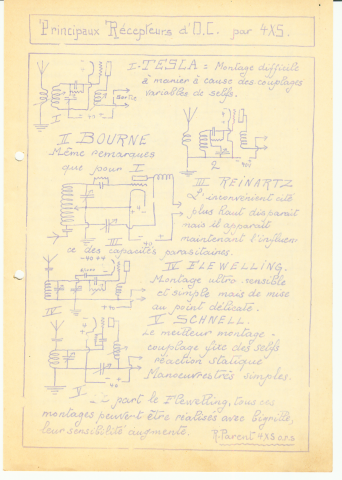 Principaux Récepteurs d'O.C. par 4XS.
I. TESLA = Montage difficile
à manier à cause des couplages
variables de selfs.
sortie
I
II BOURNE
Même remarques
que pour I
2
III REINARTZ
L'inconvenient cité
plus haut disparait
mais il apparaît
maintenant l'influen-
ce des capacités parasitaires.
III
IV FLEWELLING.
Montage ultra sensible
et simple mais de mise
au point délicate.
IV
V SCHNELL.
Le meilleur montage.
couplage fixe des selfs
réaction statique
Manoeuvres très simples.
V
à part le Flewelling, tous ces
montages peuvent être réalisés avec bigrille,
leur sensibilité augmente.
P. Parent 4XS